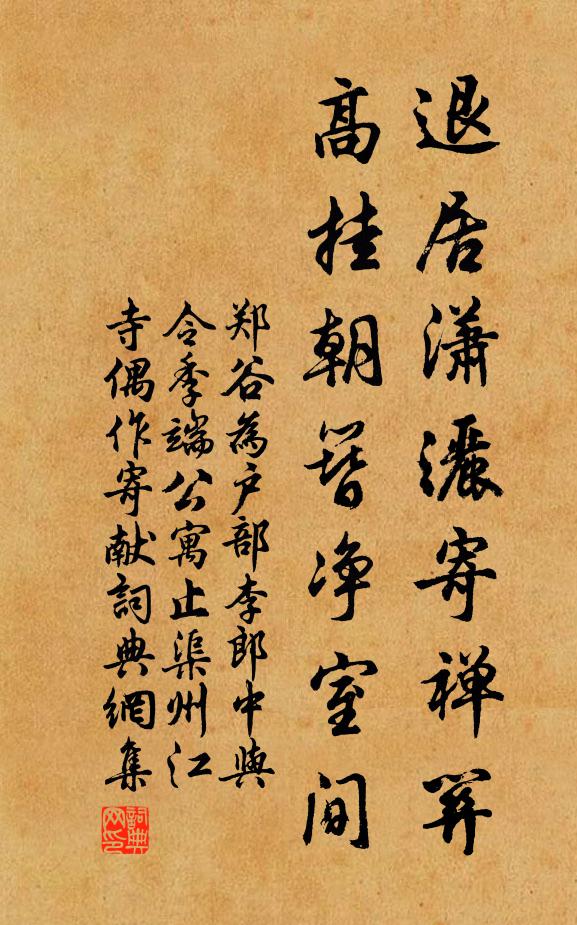 退居瀟灑寄禅关
高挂朝簪净室间
郑谷為户部李郎中與
令季端公寓止渠州江
寺偶作寄献詞典網集
詞典网印